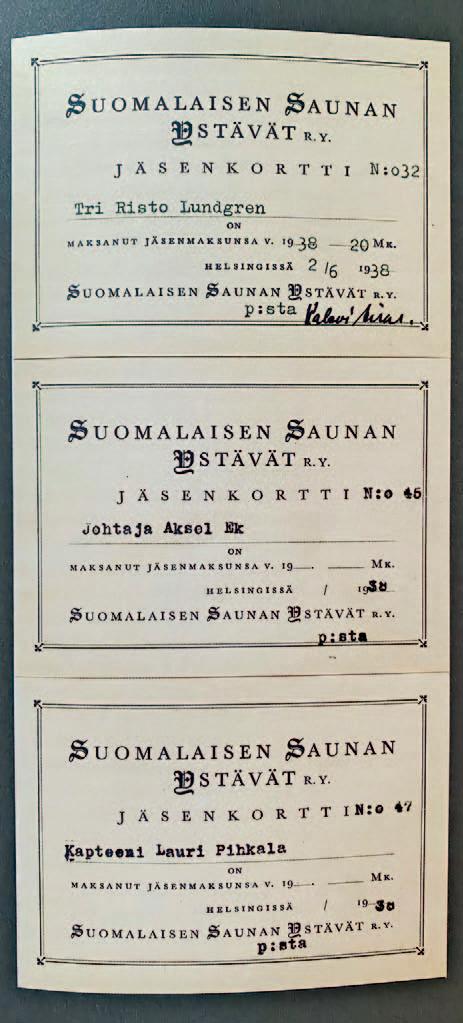 SUOMALAISEN SAUNAN
YSTÄVÄT R.Y.
JÄSENKORTTI N:o32
Tri Risto Lundgren
ON
MAKSANUT JÄSENMAKSUNSA V. 1938 — 20 MK.
HELSINGISSÄ 2/6 1938
SUOMALAISEN SAUNAN YSTÄVÄT R.Y.
p:sta Kalevi
SUOMALAISEN SAUNAN
YSTÄVÄT R.Y.
JÄSENKORTTI N:o 45
Johtaja Aksel Ek
ON
MAKSANUT JÄSENMAKSUNSA V. 19 . MK.
HELSINGISSÄ / 1938
SUOMALAISEN SAUNAN YSTÄVÄT R.Y.
p:sta
SUOMALAISEN SAUNAN
YSTÄVÄT R.Y.
JÄSENKORTTI N:o 47
Kapteeni Lauri Pihkala
ON
MAKSANUT JÄSENMAKSUNSA V. 19 . MK.
HELSINGISSÄ / 1938
SUOMALAISEN SAUNAN YSTÄVÄT R.Y.
p:sta